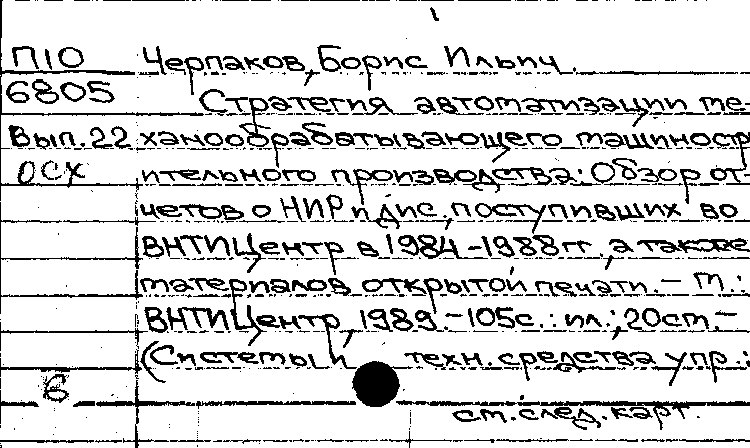 П10 Черпаков, Борис Ильич.
6805 Стратегия автоматизации ме-
Вып. 22 ханообрабатывающего машиностр
ОСХ ительного производства: Обзор от-
четов о НИР и дис., поступивших во
ВНТИЦентр в 1984-1988 гг., а также
материалов открытой печати. - М.:
ВНТИЦентр, 1989. - 105 с.: ил.; 20 см. -
(Системы и техн. средства упр.:
б
см. след. карт.